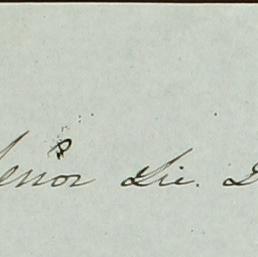 Señor Lic. D